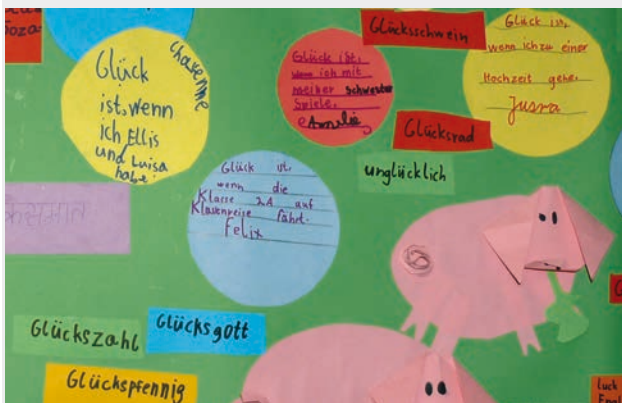 Soza
Glück
ist, wenn
ich Ellis
und Luisa
habe.
Chasemine
Glück ist,
wenn ich mit
meiner Schwester
Spiele.
Amelie
Glücksschwein
Glück ist,
wenn ich zu einer
Hochzeit gehe.
Jusra
Glücksrad
unglücklich
Glück ist,
wenn die
Klasse 2A auf
Klasenreise fährt.
Felix
Glückszahl
Glücksgott
Glückspfennig
luck
Engl